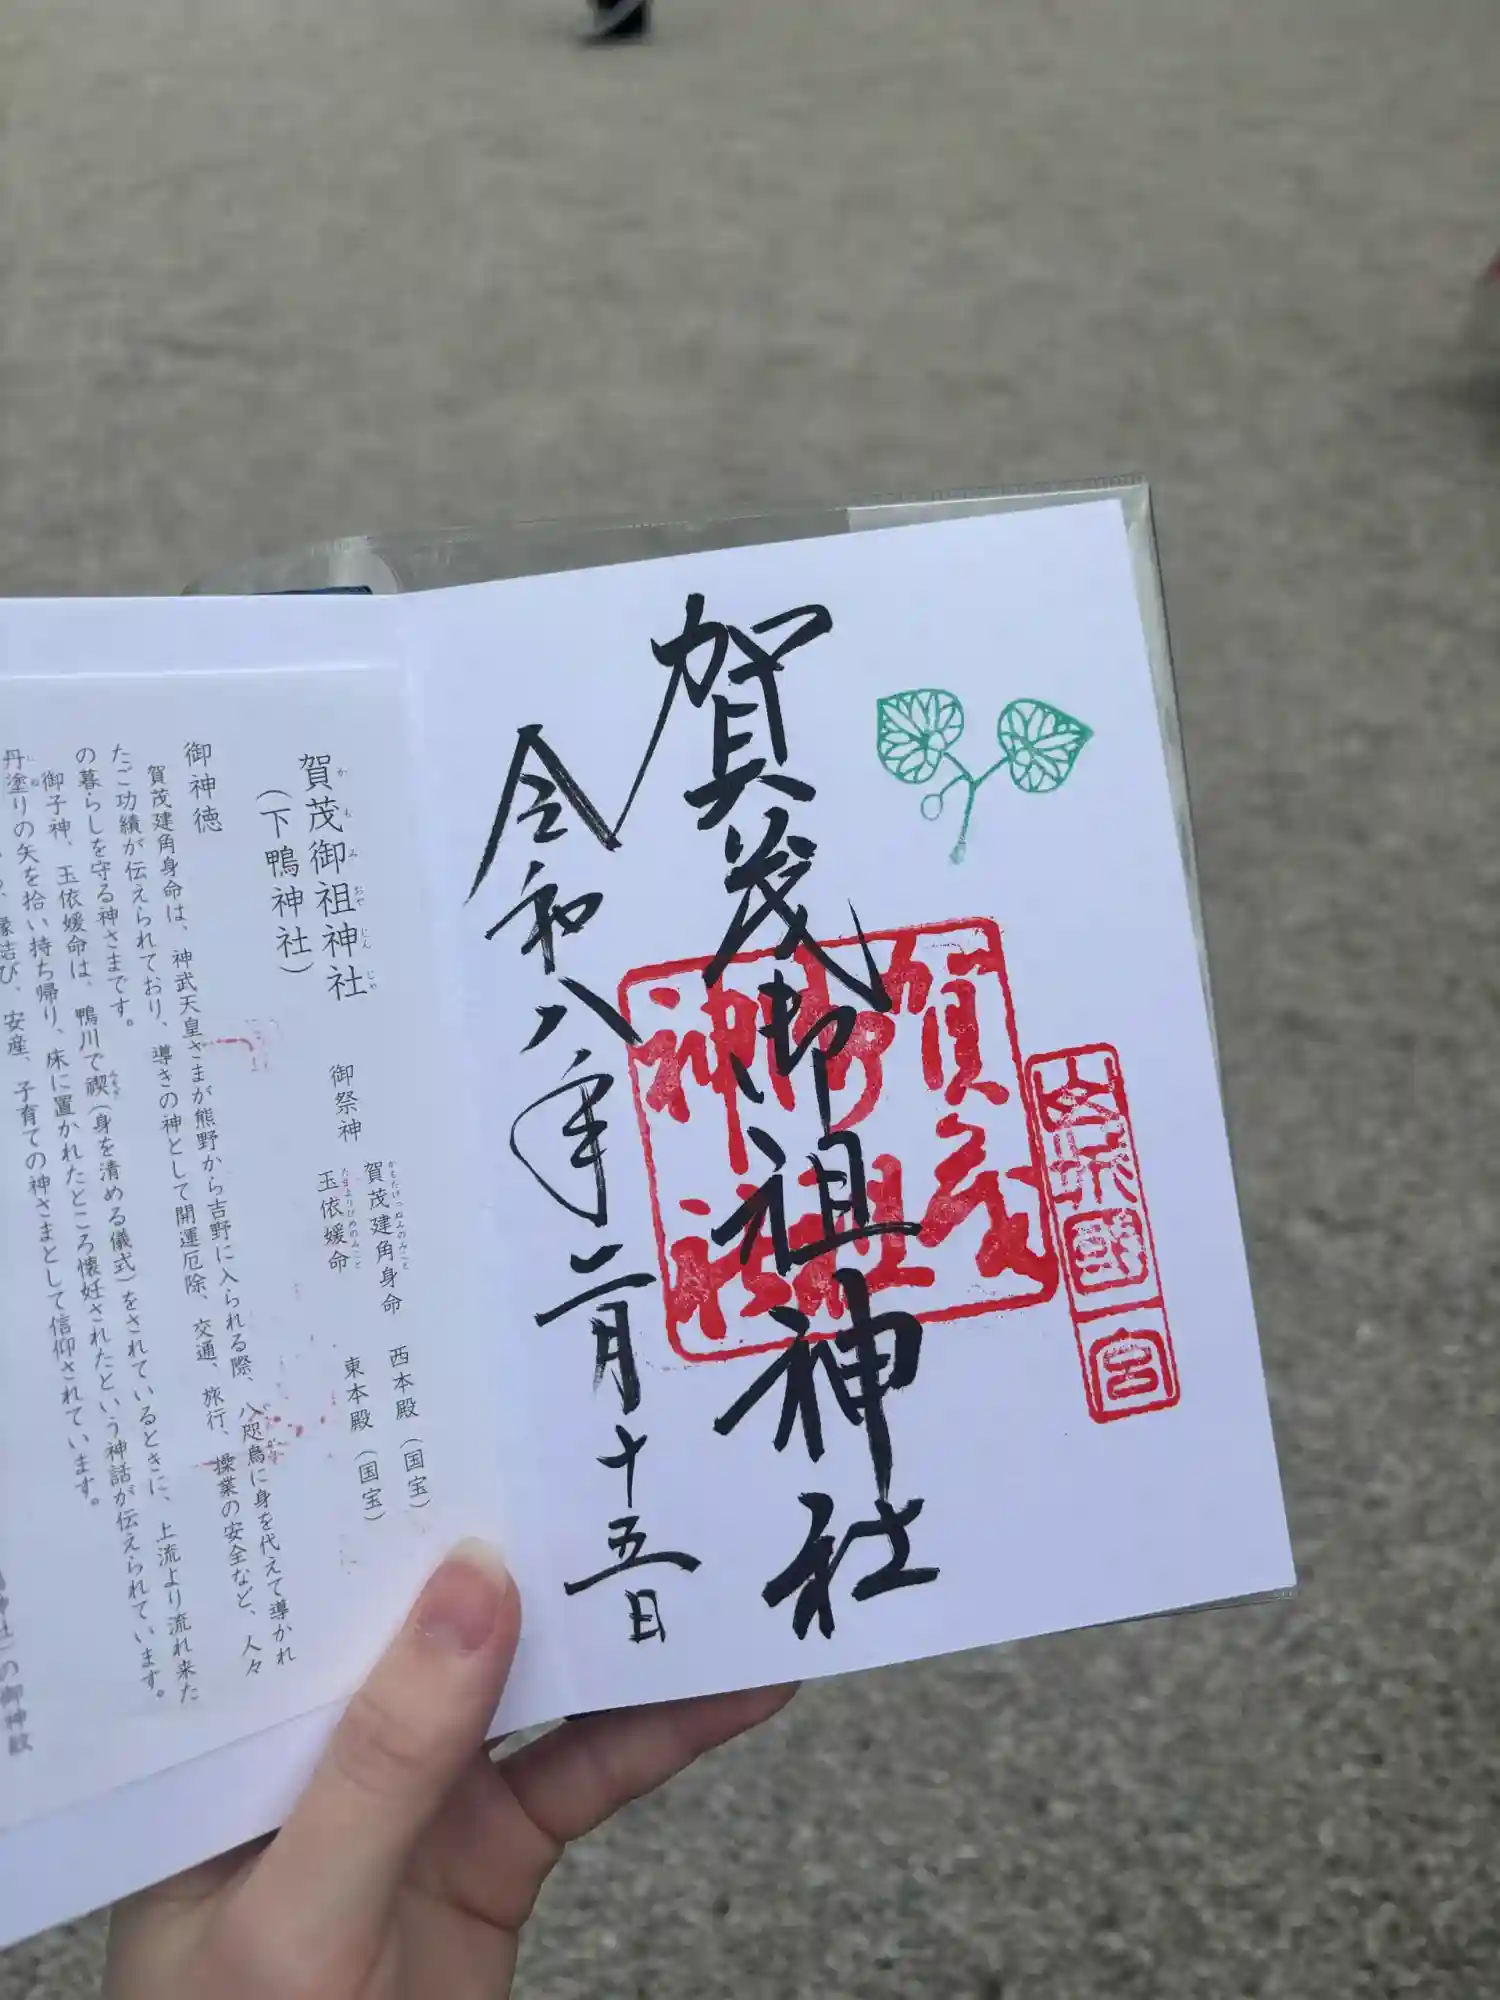 山城國一宮
賀茂御祖神社
賀茂御祖神社
令和八年二月十五日
賀茂御祖神社
かもみおやじんじゃ
(下鴨神社)
御祭神 賀茂建角身命 西本殿(国宝)
かもたけつぬみのみこと
玉依媛命 東本殿(国宝)
たまよりひめのみこと
御神徳
賀茂建角身命は、神武天皇さまが熊野から吉野に入られる際、八咫烏に身を代えて導かれ
たご功績が伝えられており、導きの神として開運厄除、交通、旅行、操業の安全など、人々
の暮らしを守る神さまです。
御子神、玉依媛命は、鴨川で禊(身を清める儀式)をされているときに、上流より流れ来た
丹塗りの矢を拾い持ち帰り、床に置かれたところ懐妊されたという神話が伝えられています。
縁結び、安産、子育ての神さまとして信仰されています。
の御神紋